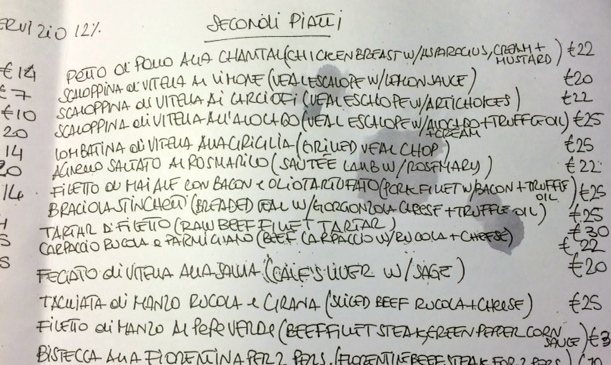 SERVIZIO 12%
SECONDI PIATTI
€14 PETTO DI POLLO ALLA CHANTAL (CHICKEN BREAST W/ASPARAGUS, CREAM + MUSTARD) €22
€7 SCALOPPINA di VITELLA AL LIMONE (VEAL ESCLOPE W/ LEMON SAUCE) €20
€10 SCALOPPINA di VITELLA AI CARCIOFI (VEAL ESCLOPE W/ARTICHOKES) €22
20 SCALOPPINA di VITELLA ALL'ALOCADO (VEAL ESCLOPE W/ AVOCADO + TRUFFLE OIL) €25
+ CREAM
14 LOMBATINA di VITELLA ALLA GRIGLIA (GRILLED VEAL CHOP) €25
20 AGNELLO SALTATO AL ROSMARINO (SAUTÉE LAMB W/ ROSEMARY) €22
14 FILETTO DI MAIALE CON BACON e OLIO TARTUFATO (PORK FILLET W/ BACON + TRUFFLE OIL) €25
BRACIOLA STINCHETTI (BREADED VEAL W/ GORGONZOLA CHEESE + TRUFFLE OIL) €25
TARTAR DI FILETTO (RAW BEEF FILLET TARTAR) €30
CARPACCIO RUCOLA e PARMIGIANO (BEEF CARPACCIO W/ RUCOLA + CHEESE) €22
FEGATO di VITELLA ALLA SALVIA (CALF'S LIVER W/ SAGE) €20
TAGLIATA di MANZO RUCOLA e GRANA (SLICED BEEF RUCOLA + CHEESE) €25
FILETTO di MANZO AL PEPE VERDE (BEEF FILLET STEAK, GREEN PEPPER CORN SAUCE)
BISTECCA ALLA FIORENTINA PER 2 PERS. (FLORENTINE BEEF STEAK FOR 2 PERS)